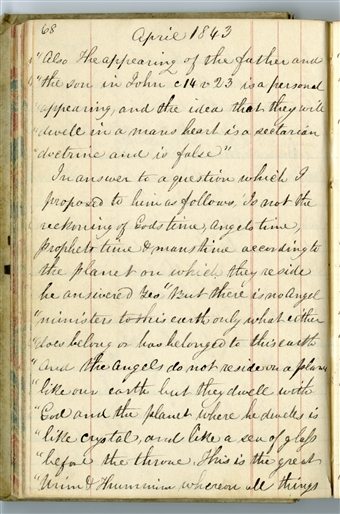 68 April 1843
"Also the appearing of the father and
"the son in John c 14 v 23 is a personal
"appearing, and the idea that they will
"dwell in a mans heart is a sectarian
"doctrine and is false"
In answer to a question which I
proposed to him as follows, Is not the
reckoning of Gods time, Angels time,
prophets time & mans time according to
the planet on which they reside
he answered Yes "But there is no Angel
"ministers to this earth only what either
"does belong or has belonged to this earth
"and the Angels do not reside on a planet
"like our earth but they dwell with
"God and the planet where he dwells is
"like crystal, and like a sea of glass
"before the throne. This is the great
"Urim & Thummim whereon all things